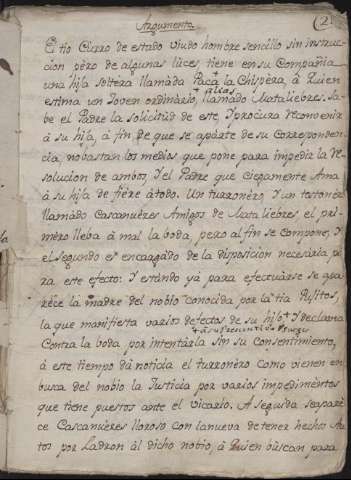 Argumento
(2
El tio Curro de estado viudo hombre sencillo sin instruc-
cion pero de algunas luces tiene en su Compañia
una hija soltera llamada Paca la Chispera, à Quien
estima un Joven ordinario, + alias llamado Mataliebres. Sa-
be el Padre la solicitud de este, y procura reconvenir
à su hija, à fin de que se apàrte de su Correponden-
cia, no bastan los medios que pone para impedir la re-
solucion de ambos, y el Padre que ciegamente Ama
à su hija defiere àtodo. Un turronèro, y un
llamàdo Cascanueces Amigos de Mataliebres, el pri-
mèro lleba à mal la boda, pero al fin se compone, y
el segundo es encargado de la disposicion necesaria pa-
ra este efecto: y estàndo yà para efectuarse se apa-
rèce la madre del nobio conocida por la tia Pulitos,
la que manifiesta varios defectos de su hijo + y declama
Contra la boda por intentàrla sin su Consentimiento,
à este tiempo dà noticia el turronèro como vienen en
busca del nobio la Justicia por varios impedimentos
que tiene puestos ante el vicario. A seguida se apare-
ce Cascanueces lloroso con la nueva de tener hechos Au-
tos por Ladron àl dicho nobio, à Quien bùscan para